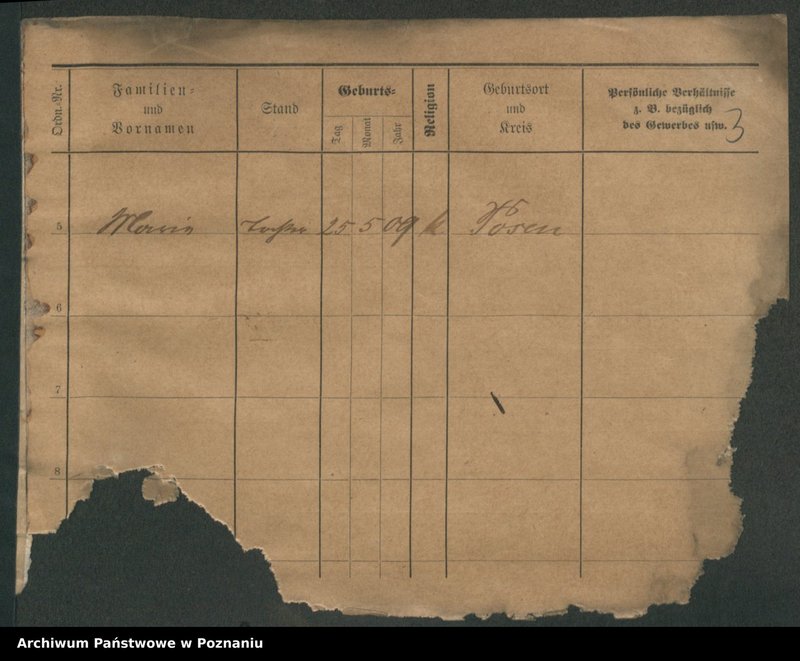 Ordn.-Nr.
Familien-
und
Vornamen
Stand
Geburts-
Tag
Monat
Jahr
Religion
Geburtsort
und
Kreis
Persönliche Verhältnisse
z. B. bezüglich
des Gewerbes usw.
3
5 Maria Tochter 25 5 09 k Posen
6
7
8
Archiwum Państwowe w Poznaniu